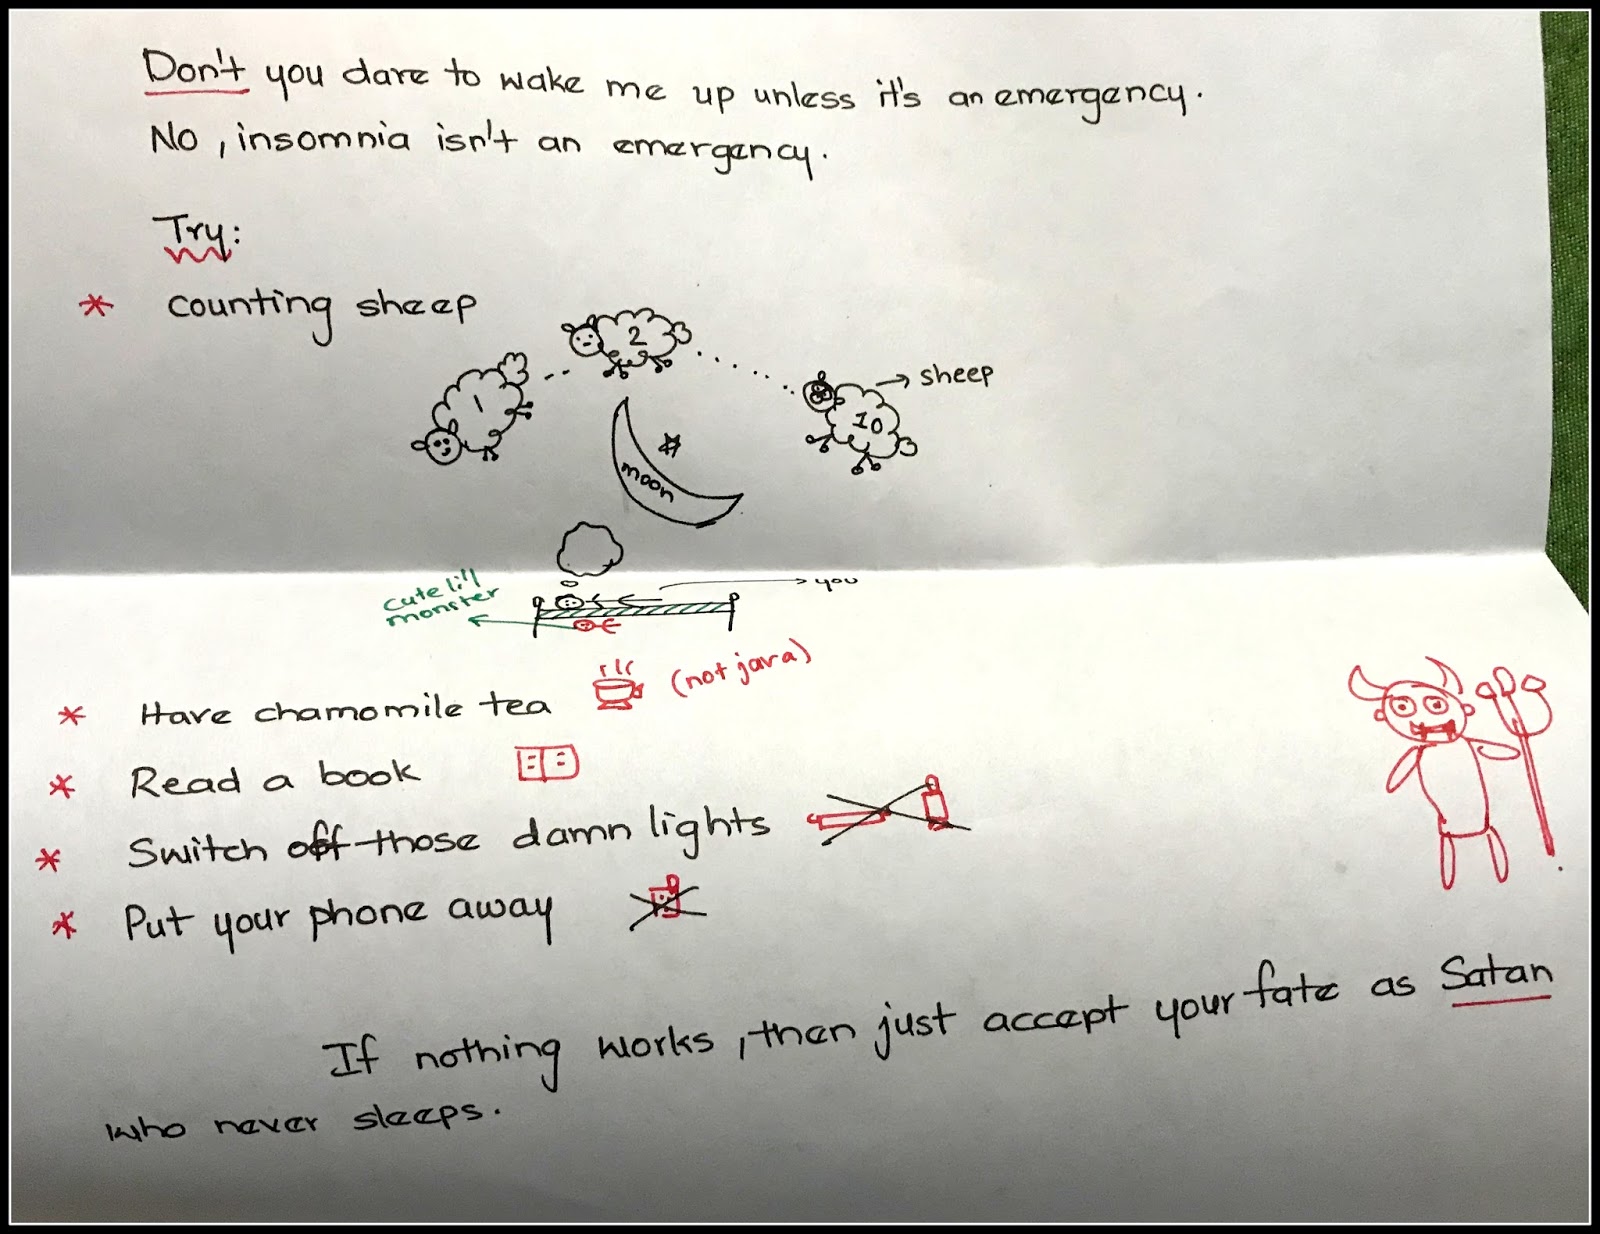 Don't you dare to wake me up unless it's an emergency.
No, insomnia isn't an emergency.
Try:
* counting sheep
1
2
10
sheep
moon
cute li'll
monster
you
* Have chamomile tea (not java)
* Read a book
* Switch off those damn lights
* Put your phone away
If nothing works, then just accept your fate as Satan
who never sleeps.